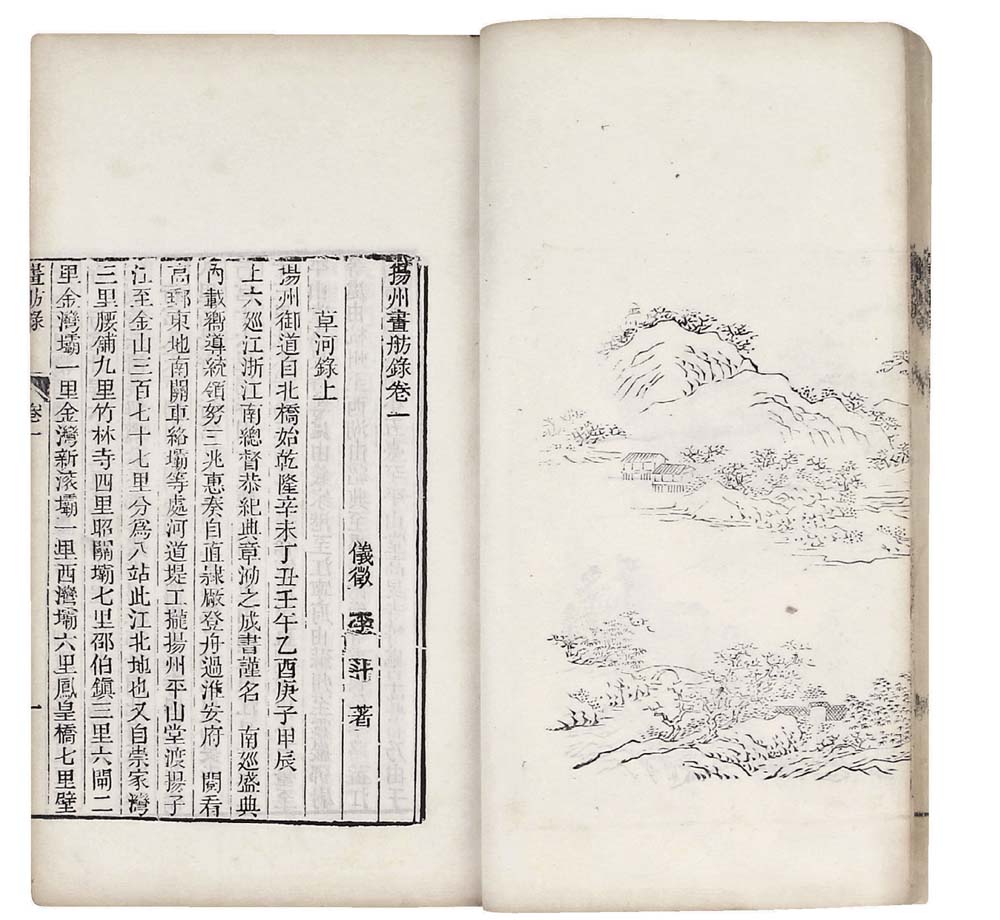 揚州畫舫錄卷一
儀徵 李斗 著
草河錄上
揚州御道自北橋始乾隆辛未丁丑壬午乙酉庚子甲辰
上六廵江浙江南總督恭紀典章泐之成書謹名 南廵盛典
內載嚮導統領努三兆惠奏自直隷厰登舟過淮安府 閱看
高郵東地南關車絡壩等處河道堤工攏揚州平山堂渡揚子
江至金山三百七十七里分爲八站此江北地也又自崇家灣
三里腰舖九里竹林寺四里昭關壩七里邵伯鎮三里六閘二
里金灣壩一里金灣新滚壩一里西灣壩六里鳳皇橋七里壁
畫舫錄 卷一 一